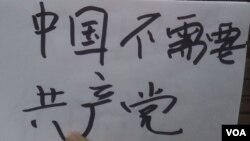 中国不需要
共产党
VOA